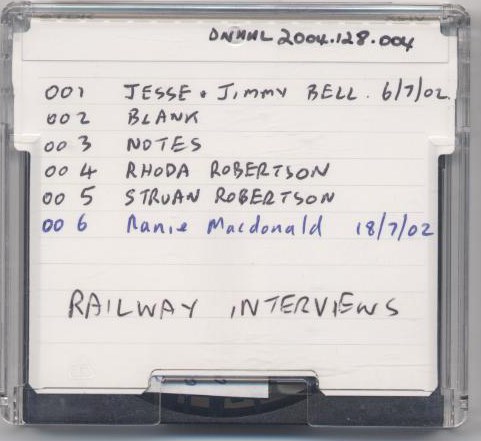 DNHHL 2004.128.004
001 JESSE + JIMMY BELL. 6/7/02.
002 BLANK
003 NOTES
004 RHODA ROBERTSON
005 STRUAN ROBERTSON
006 Ranie Macdonald 18/7/02
RAILWAY INTERVIEWS